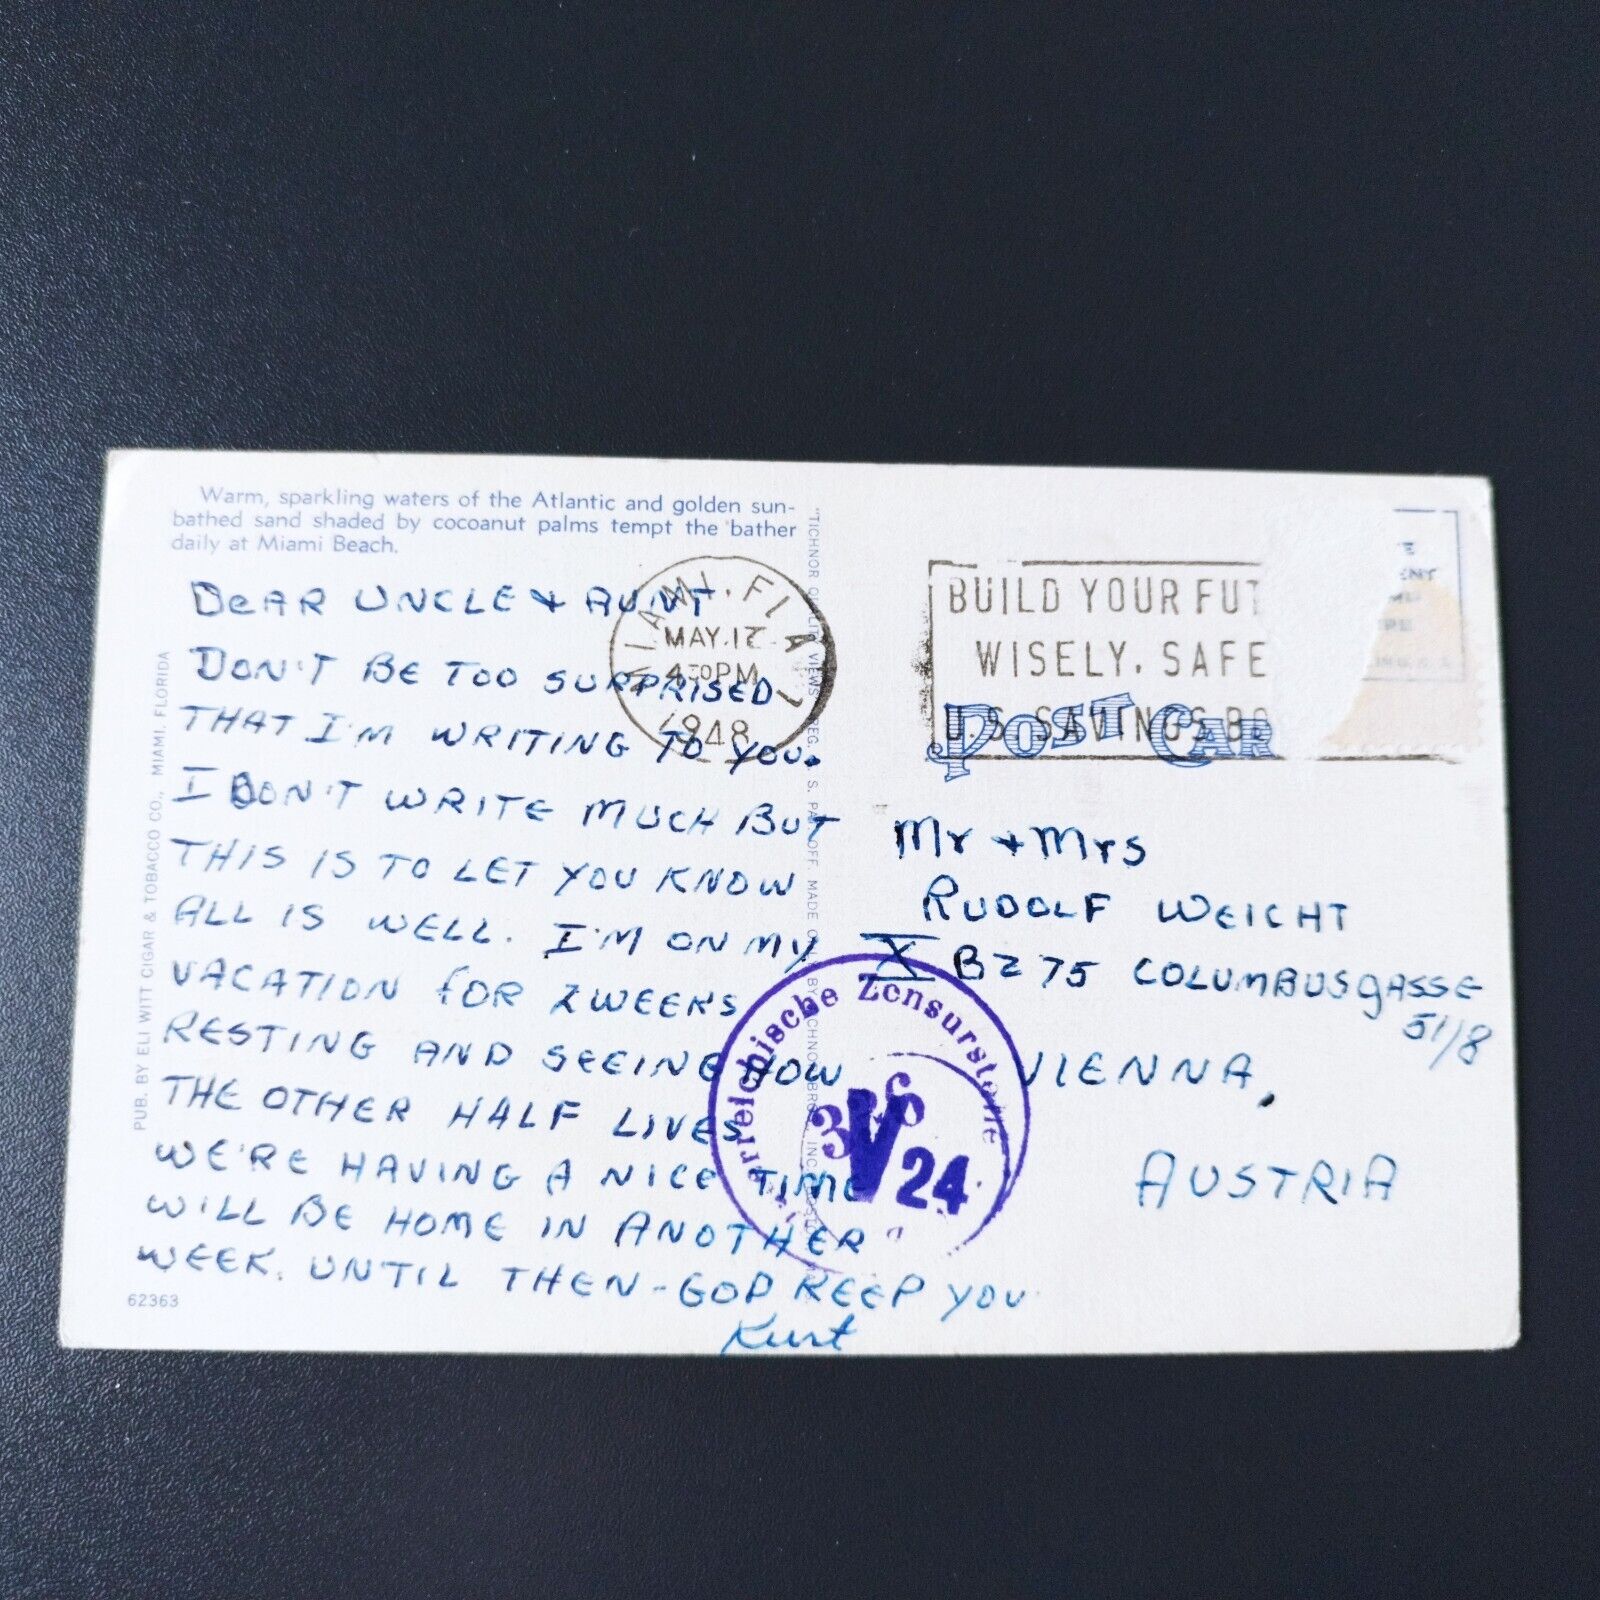 Warm, sparkling waters of the Atlantic and golden sun-
bathed sand shaded by cocoanut palms tempt the bather
daily at Miami Beach.
DEAR UNCLE + AUNT
DON'T BE TOO SURPRISED
THAT I'M WRITING TO YOU.
I DON'T WRITE MUCH BUT
THIS IS TO LET YOU KNOW
ALL IS WELL. I'M ON MY
VACATION FOR 2 WEEKS
RESTING AND SEEING HOW
THE OTHER HALF LIVES
WE'RE HAVING A NICE TIME
WILL BE HOME IN ANOTHER
WEEK. UNTIL THEN - GOD KEEP YOU
Kurt
62363
PUB. BY ELI WITT CIGAR & TOBACCO CO., MIAMI, FLORIDA
"TICHNOR QUALITY VIEWS" REG. U. S. PAT. OFF. MADE ONLY BY TICHNOR BROS., INC.
MIAMI, FLA.
MAY 17
4 30 PM
1948
BUILD YOUR FUT
WISELY, SAFE
U.S. SAVINGS BO
POST CAR
Mr + Mrs
RUDOLF WEICHT
X BZ 75 COLUMBUSGASSE
51/8
VIENNA,
AUSTRIA
Zensurstelle
V 24